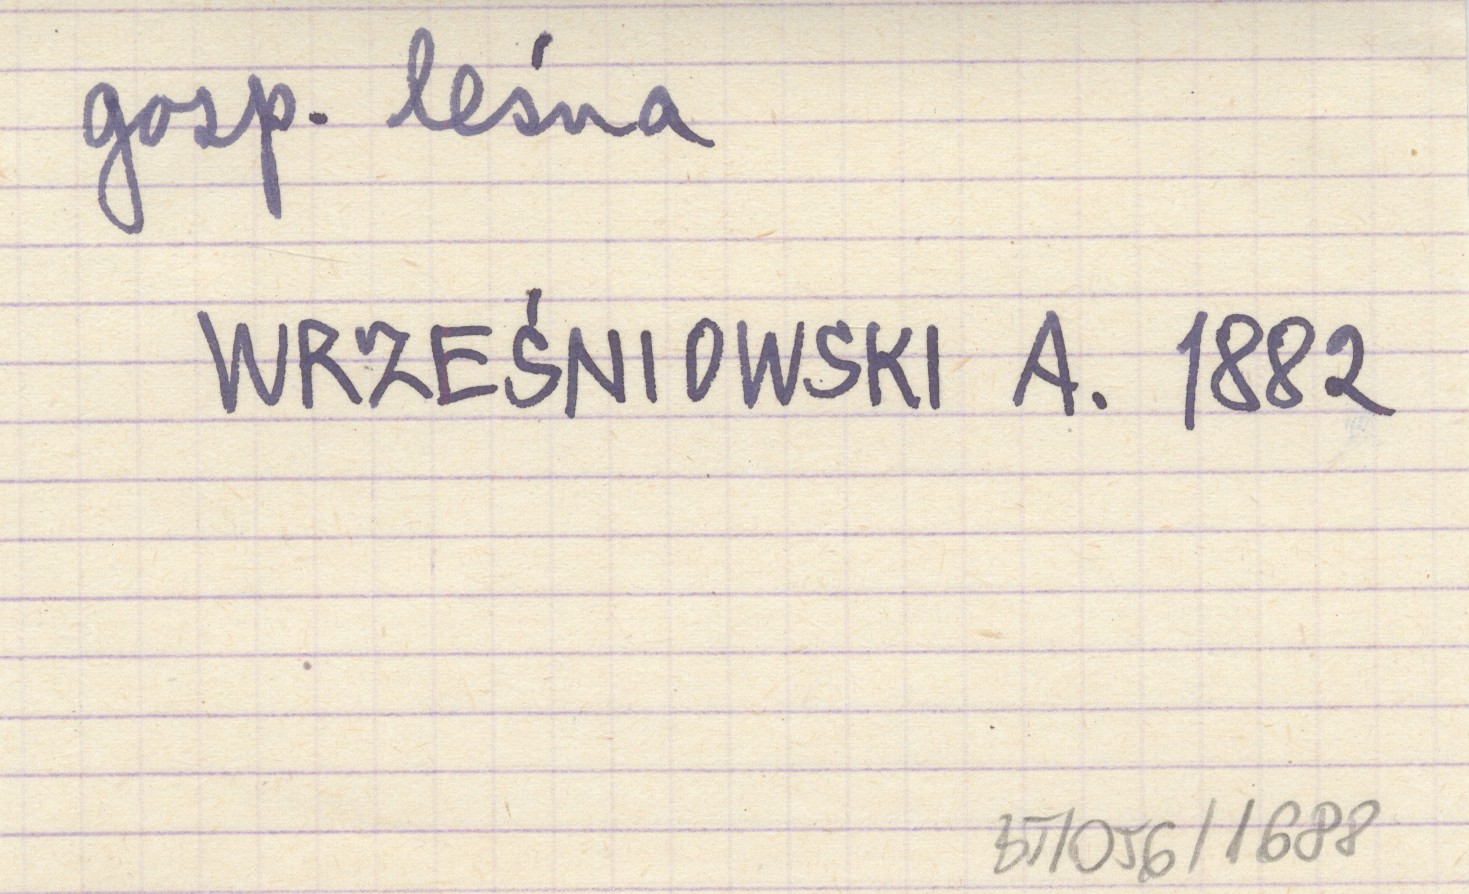 gosp. leśna
WRZEŚNIOWSKI A. 1882
BT/056/1688